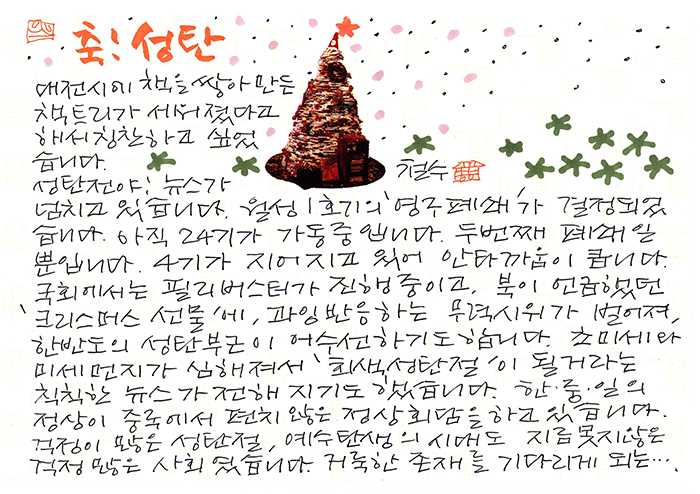 축! 성탄
대전시에 책을 쌓아 만든
책트리가 세워졌다고
해서 칭찬하고 싶었
습니다.
철수
성탄전야! 뉴스가
넘치고 있습니다. 월성 1호기의 '영구폐쇄'가 결정되었
습니다. 아직 24기가 가동중입니다. 두번째 폐쇄일
뿐입니다. 4기가 지어지고 있어 안타까움이 큽니다.
국회에서는 필리버스터가 진행중이고, 북이 언급했던
'크리스머스 선물'에, 과잉반응하는 무력시위가 벌어져,
한반도의 성탄부근이 어수선하기도 합니다. 초미세니
미세먼지가 심해져서 '회색성탄절'이 될거라는
칙칙한 뉴스가 전해 지기도 했습니다. 한·중·일의
정상이 중국에서 편치 않은 정상회담을 하고 있습니다.
걱정이 많은 성탄절, 예수탄생의 시대도 지금 못지않은
걱정 많은 사회였습니다. 거룩한 존재를 기다리게 되는…